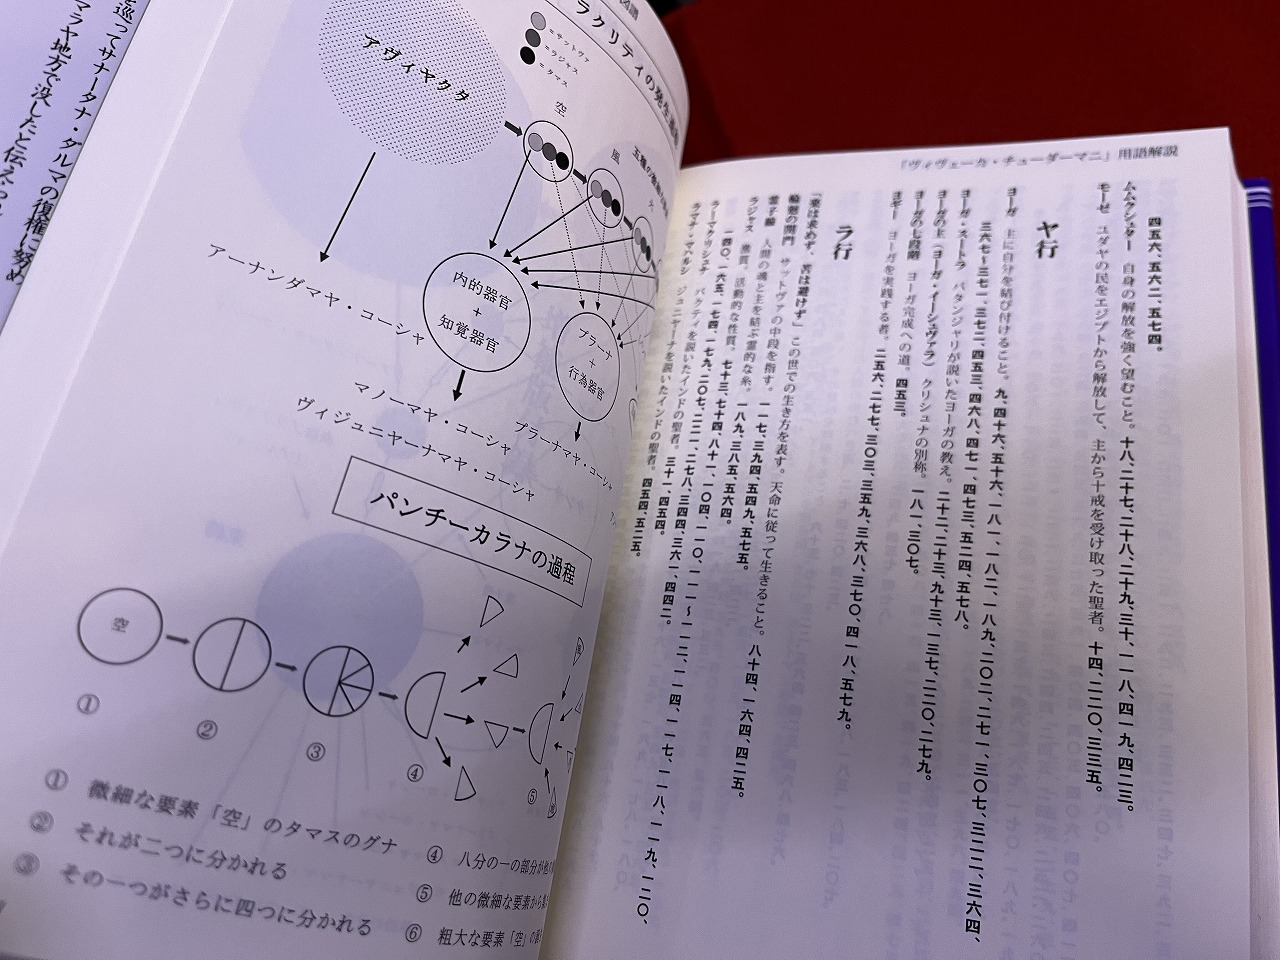 『ヴィヴェーカ・チューダーマニ』用語解説
四五六、五六二、五七四。
ムムクシュター 自身の解放を強く望むこと。十八、二十七、二十八、二十九、三十、一一八、四一九、四二三。
モーゼ ユダヤの民をエジプトから解放して、主から十戒を受け取った聖者。十四、二二〇、三三五。
ヤ行
ヨーガ 主に自分を結び付けること。九、四十六、五十六、一八一、一八二、一八九、二〇二、二七一、三〇七、三二二、三六四、
三六七～三七一、三七二、四五三、四六八、四七一、四七三、五二四、五七八。
ヨーガ・スートラ パタンジャリが説いたヨーガの教え。二十二、二十三、九十三、一三七、二二〇、二七九。
ヨーガの主（ヨーガ・イーシュヴァラ） クリシュナの別称。一八一、三〇七。
ヨーガの七段階 ヨーガ完成への道。四五三。
ヨギー ヨーガを実践する者。二五六、二七七、三〇三、三五九、三六八、三七〇、四一八、五七九。
ラ行
「楽は求めず、苦は避けず」 この世での生き方を表す。天命に従って生きること。八十四、一六四、四二五。
輪廻の開門 サットヴァの中段を指す。一一七、三九四、五四九、五七五。
霊子線 人間の魂と主を結ぶ霊的な糸。一八九、三八五、五六四。
ラジャス 激質。活動的な性質。七十三、七十四、八十一、一〇四、一一〇、一一一～一一二、一一四、一一七、一一八、一一九、一二〇、
一四〇、一六五、一七四、一七九、二〇七、二二一、二七八、三四四、三六一、四四二。
ラーマクリシュナ バクティを説いたインドの聖者。三十一、四五四。
ラマナ・マハルシ ジュニャーナを説いたインドの聖者。四五四、五二五。
を巡ってサナータナ・ダルマの復権に努め
マラヤ地方で没したと伝えられ
図譜
ラクリティの発生過程
アヴィヤクタ
＝サットヴァ
＝ラジャス
＝タマス
空
風
火
内的器官
＋
知覚器官
プラーナ
＋
行為器官
アーナンダマヤ・コーシャ
マノーマヤ・コーシャ
ヴィジュニャーナマヤ・コーシャ
プラーナマヤ・コーシャ
パンチーカラナの過程
空
①
②
③
④
⑤
① 微細な要素「空」のタマスのグナ
② それが二つに分かれる
③ その一つがさらに四つに分かれる
④ 八分の一の部分が他の
⑤ 他の微細な要素から
⑥ 粗大な要素「空」の